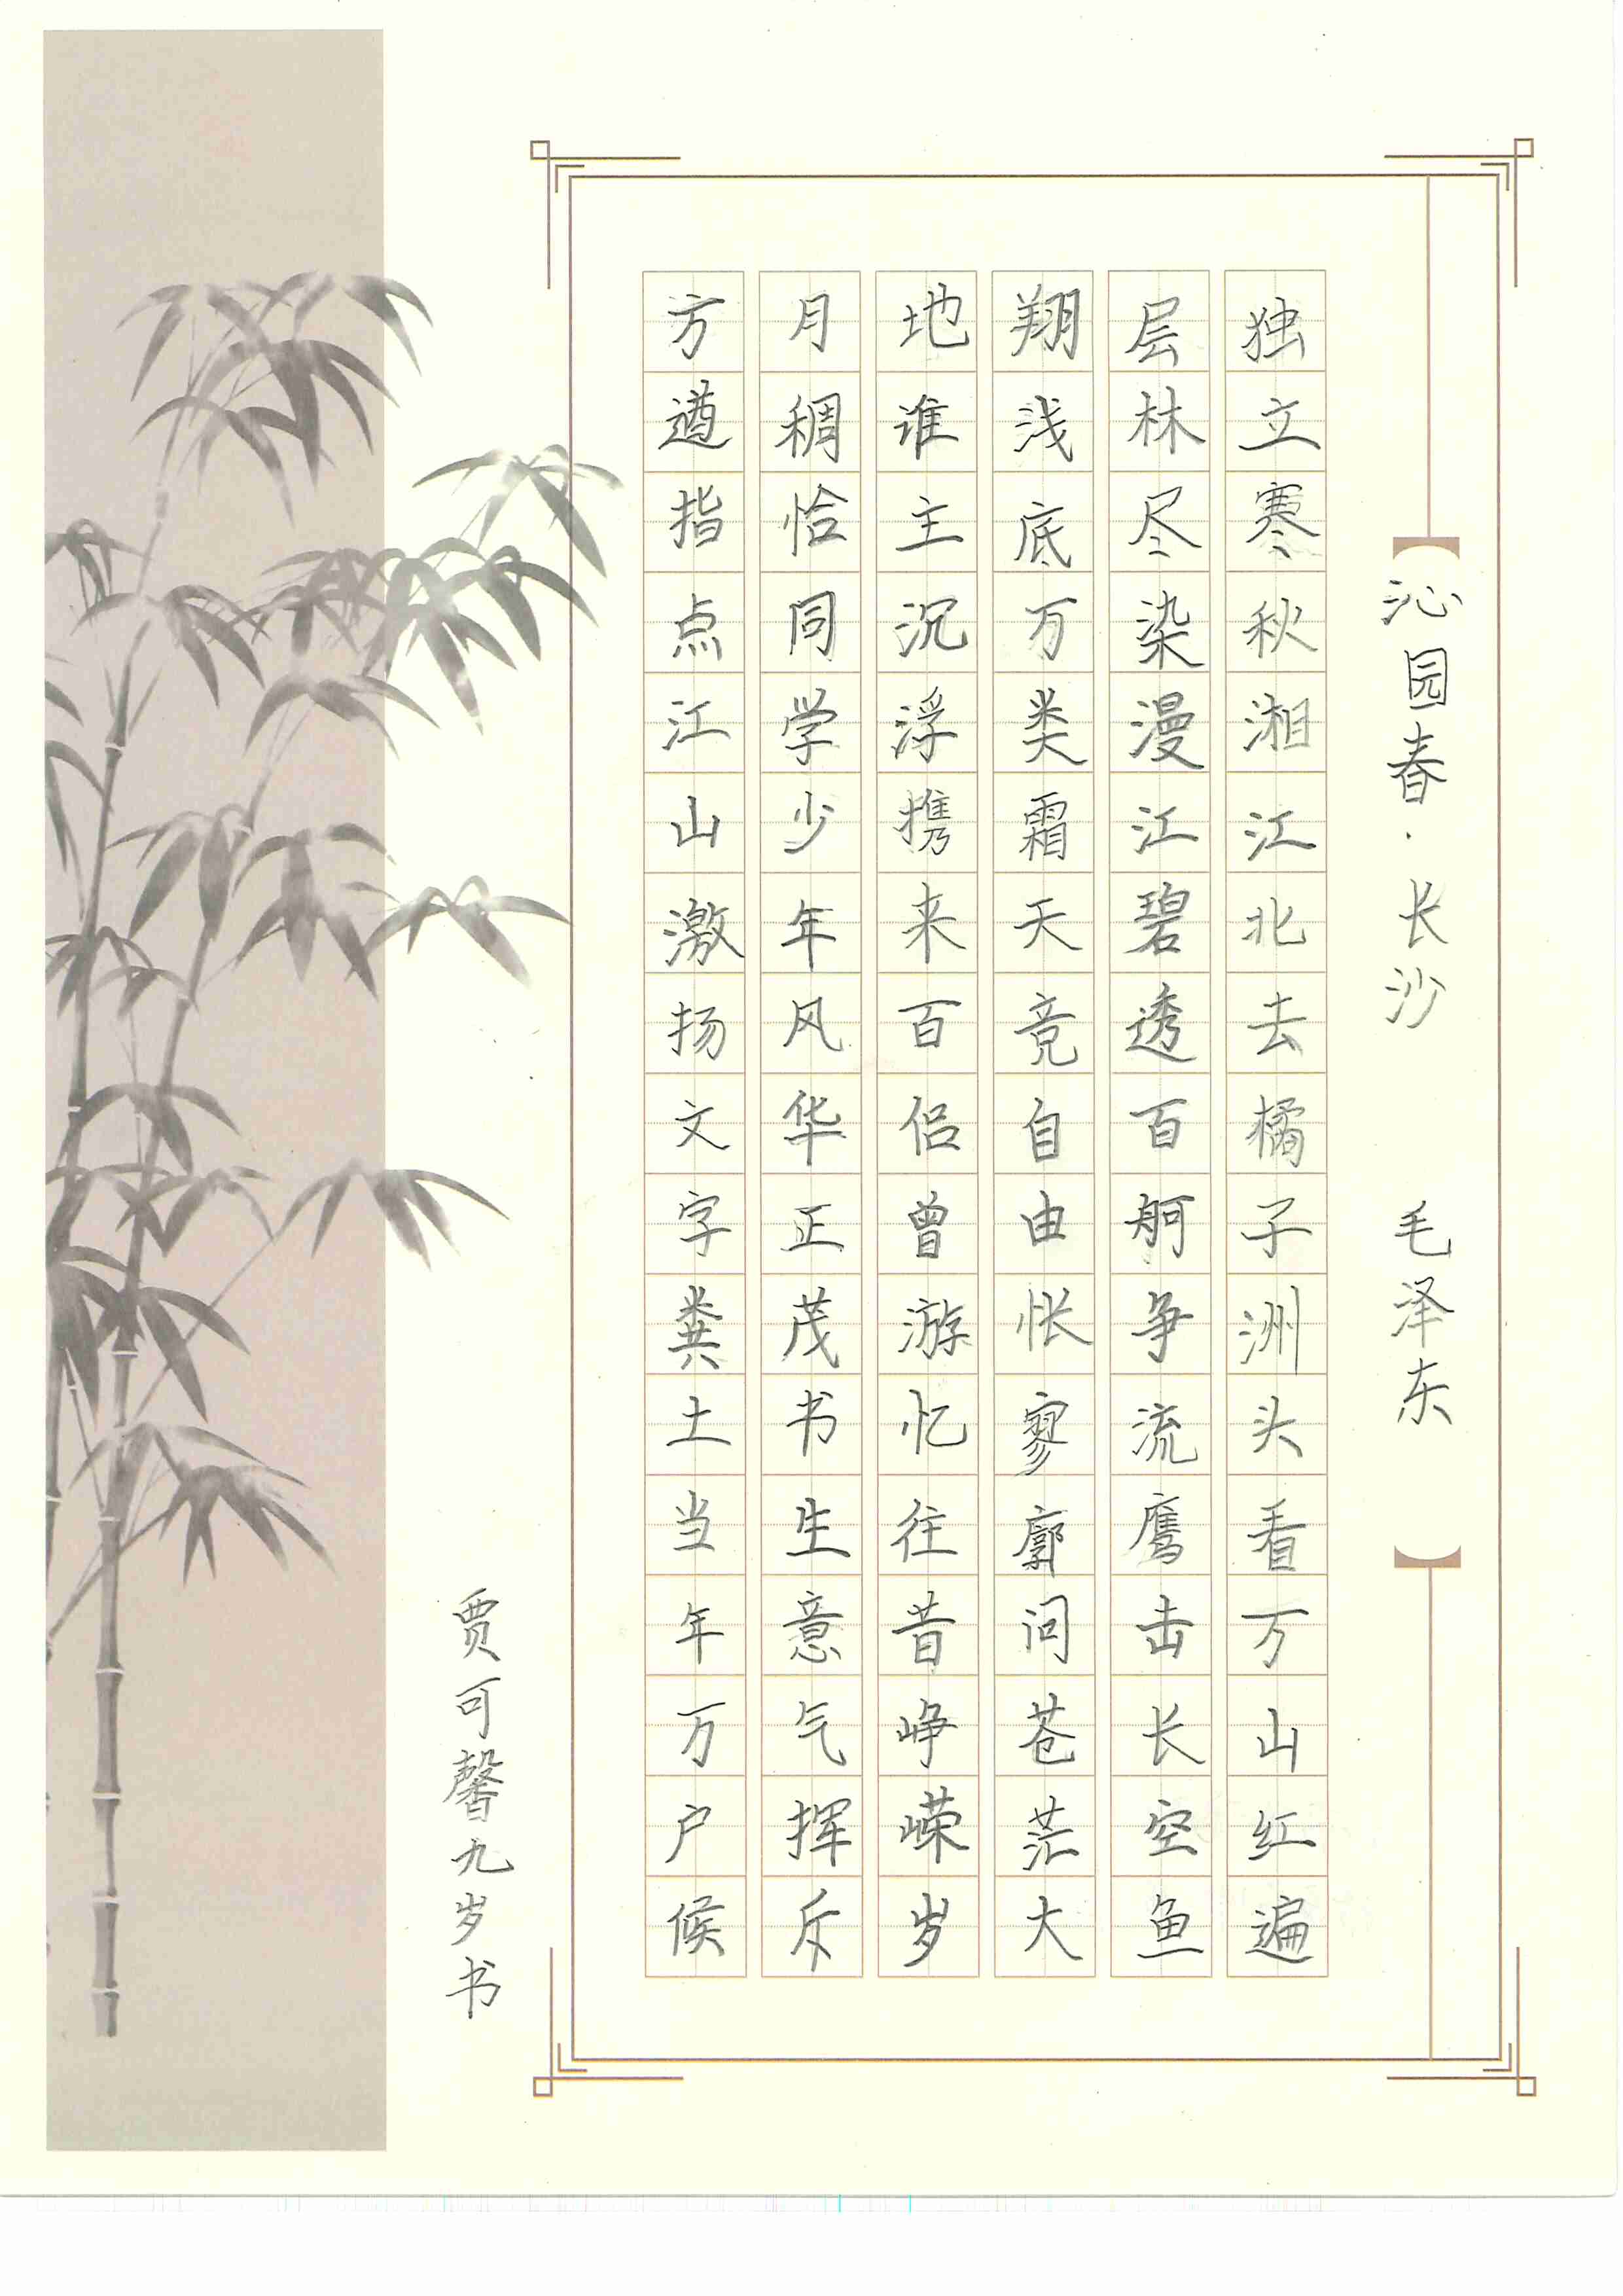 沁园春·长沙 毛泽东
独立寒秋湘江北去橘子洲头看万山红遍
层林尽染漫江碧透百舸争流鹰击长空鱼
翔浅底万类霜天竞自由怅寥廓问苍茫大
地谁主沉浮携来百侣曾游忆往昔峥嵘岁
月稠恰同学少年风华正茂书生意气挥斥
方遒指点江山激扬文字粪土当年万户侯
贾可馨九岁书